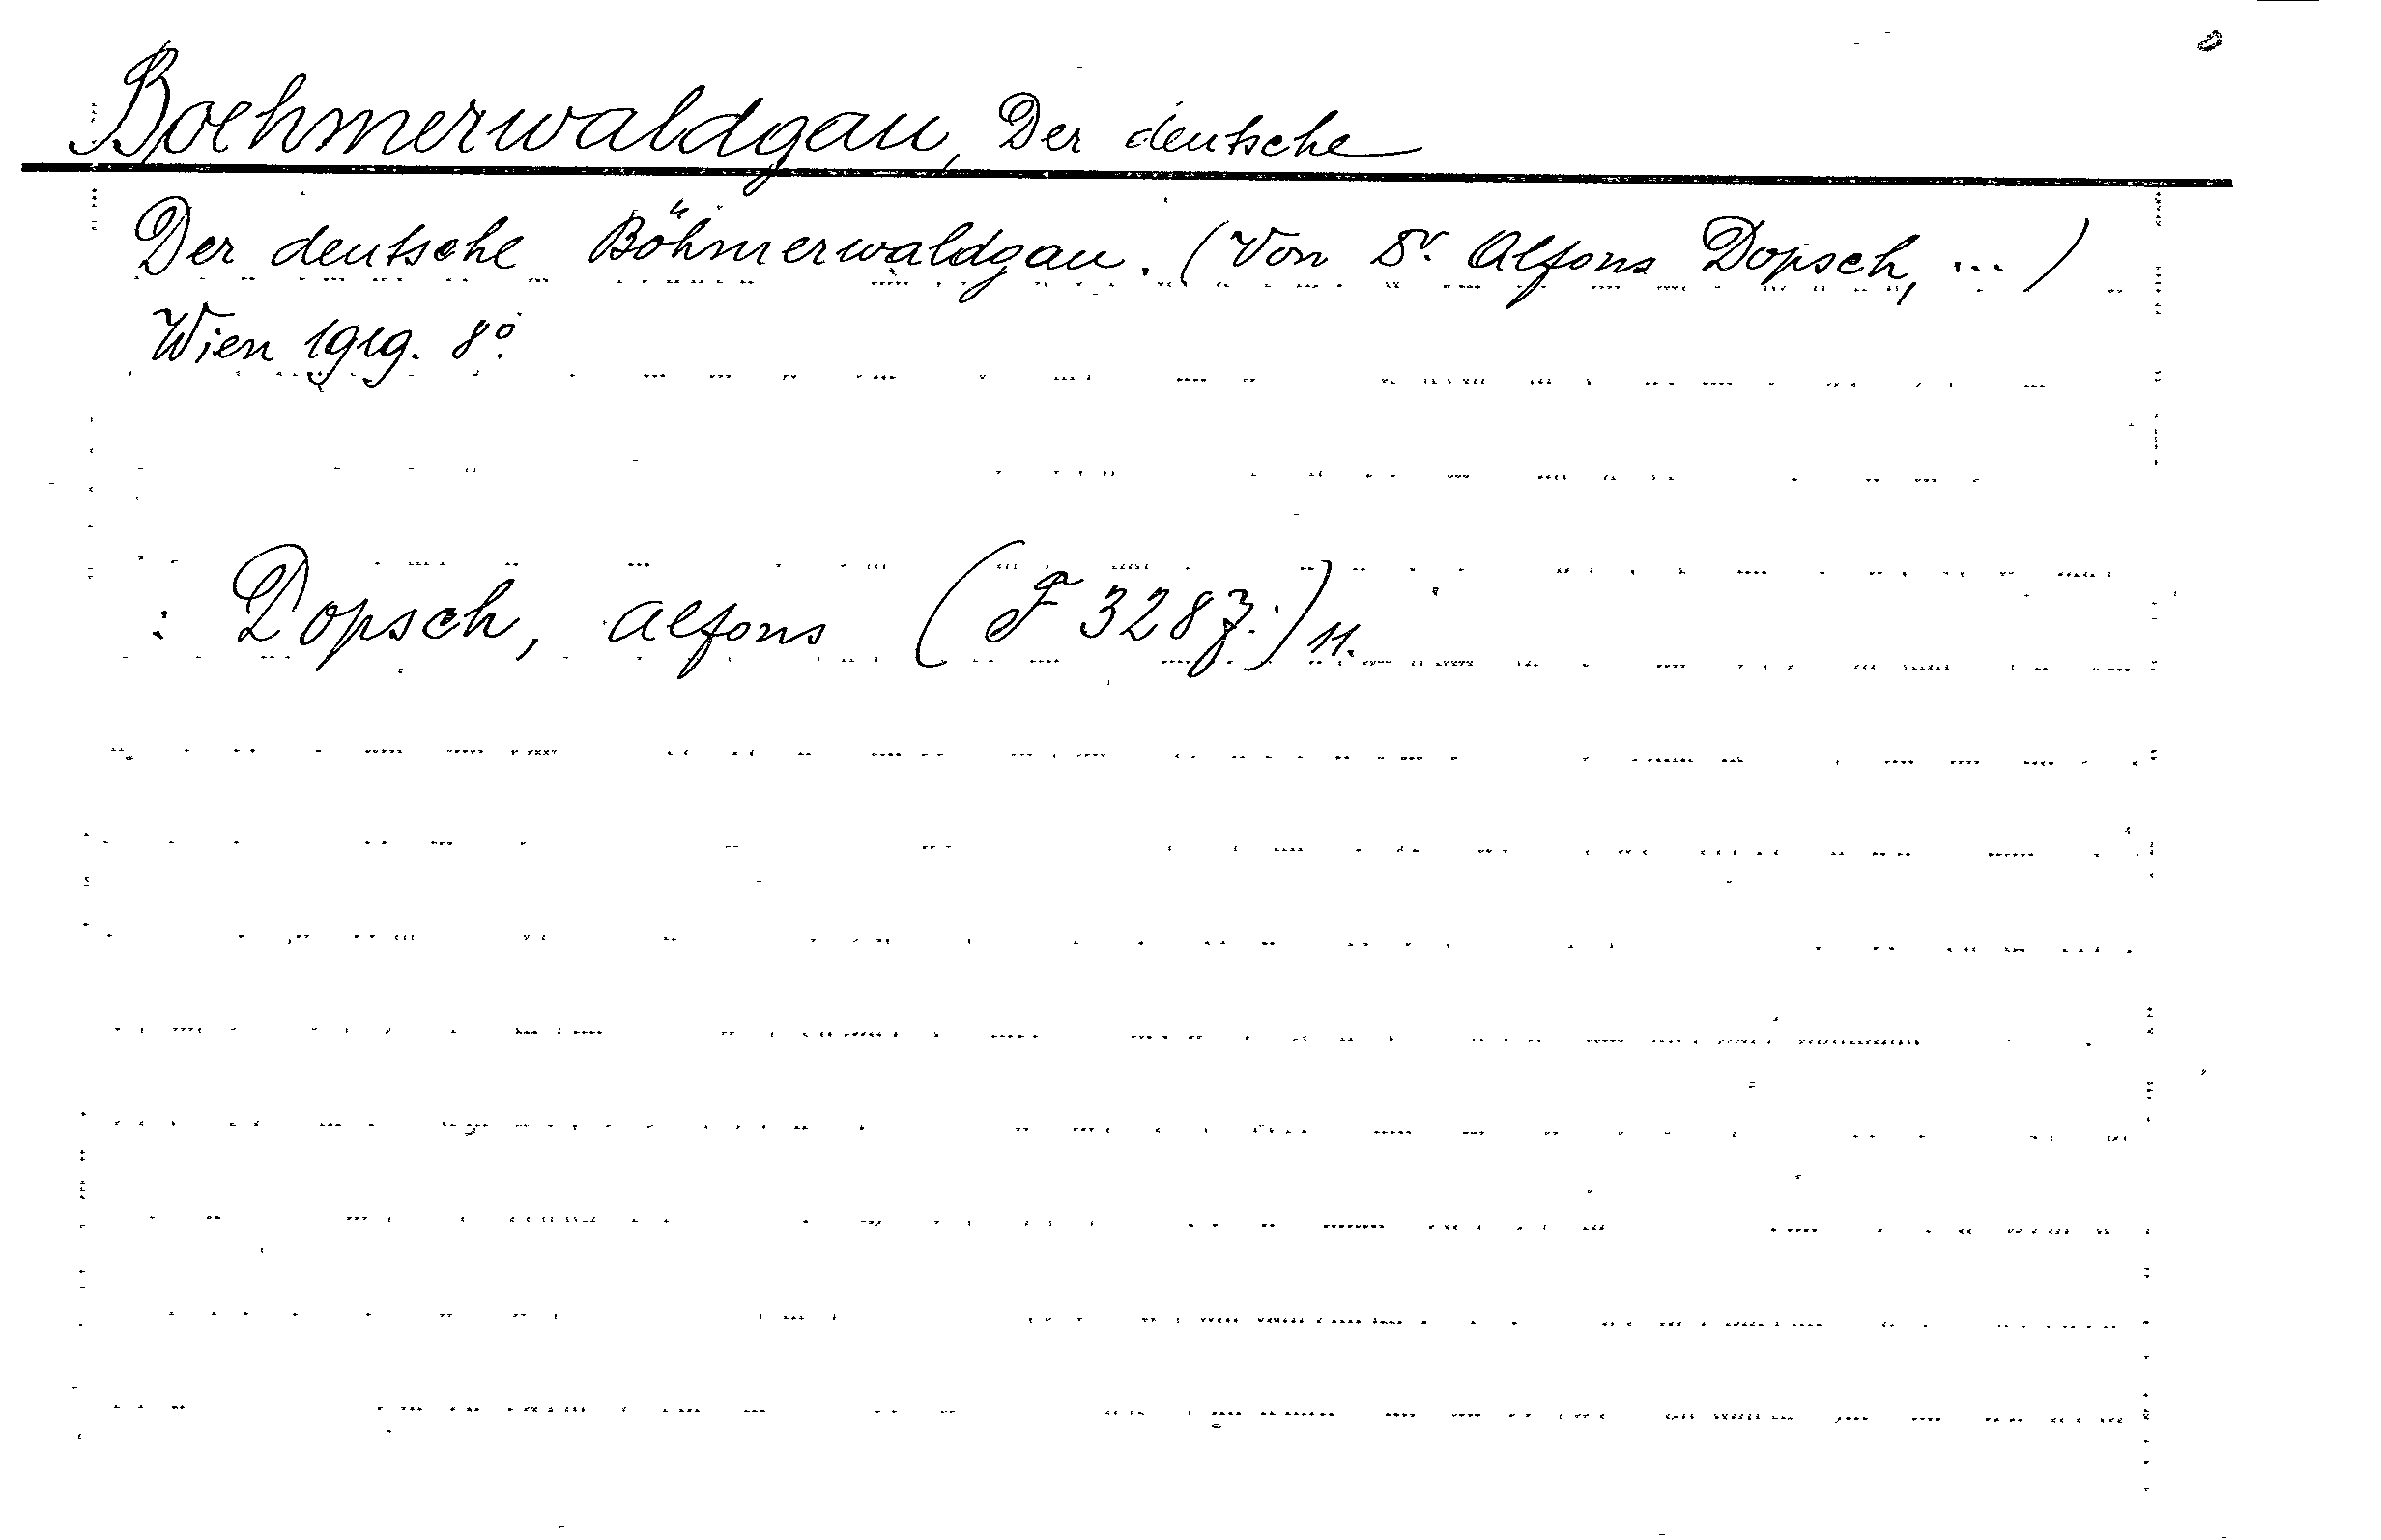 Boehmerwaldgau, Der deutsche
Der deutsche Böhmerwaldgau. (Von Dr. Alfons Dopsch, ...)
Wien 1919. 8°.
: Dopsch, Alfons (F 328 z.) 11.